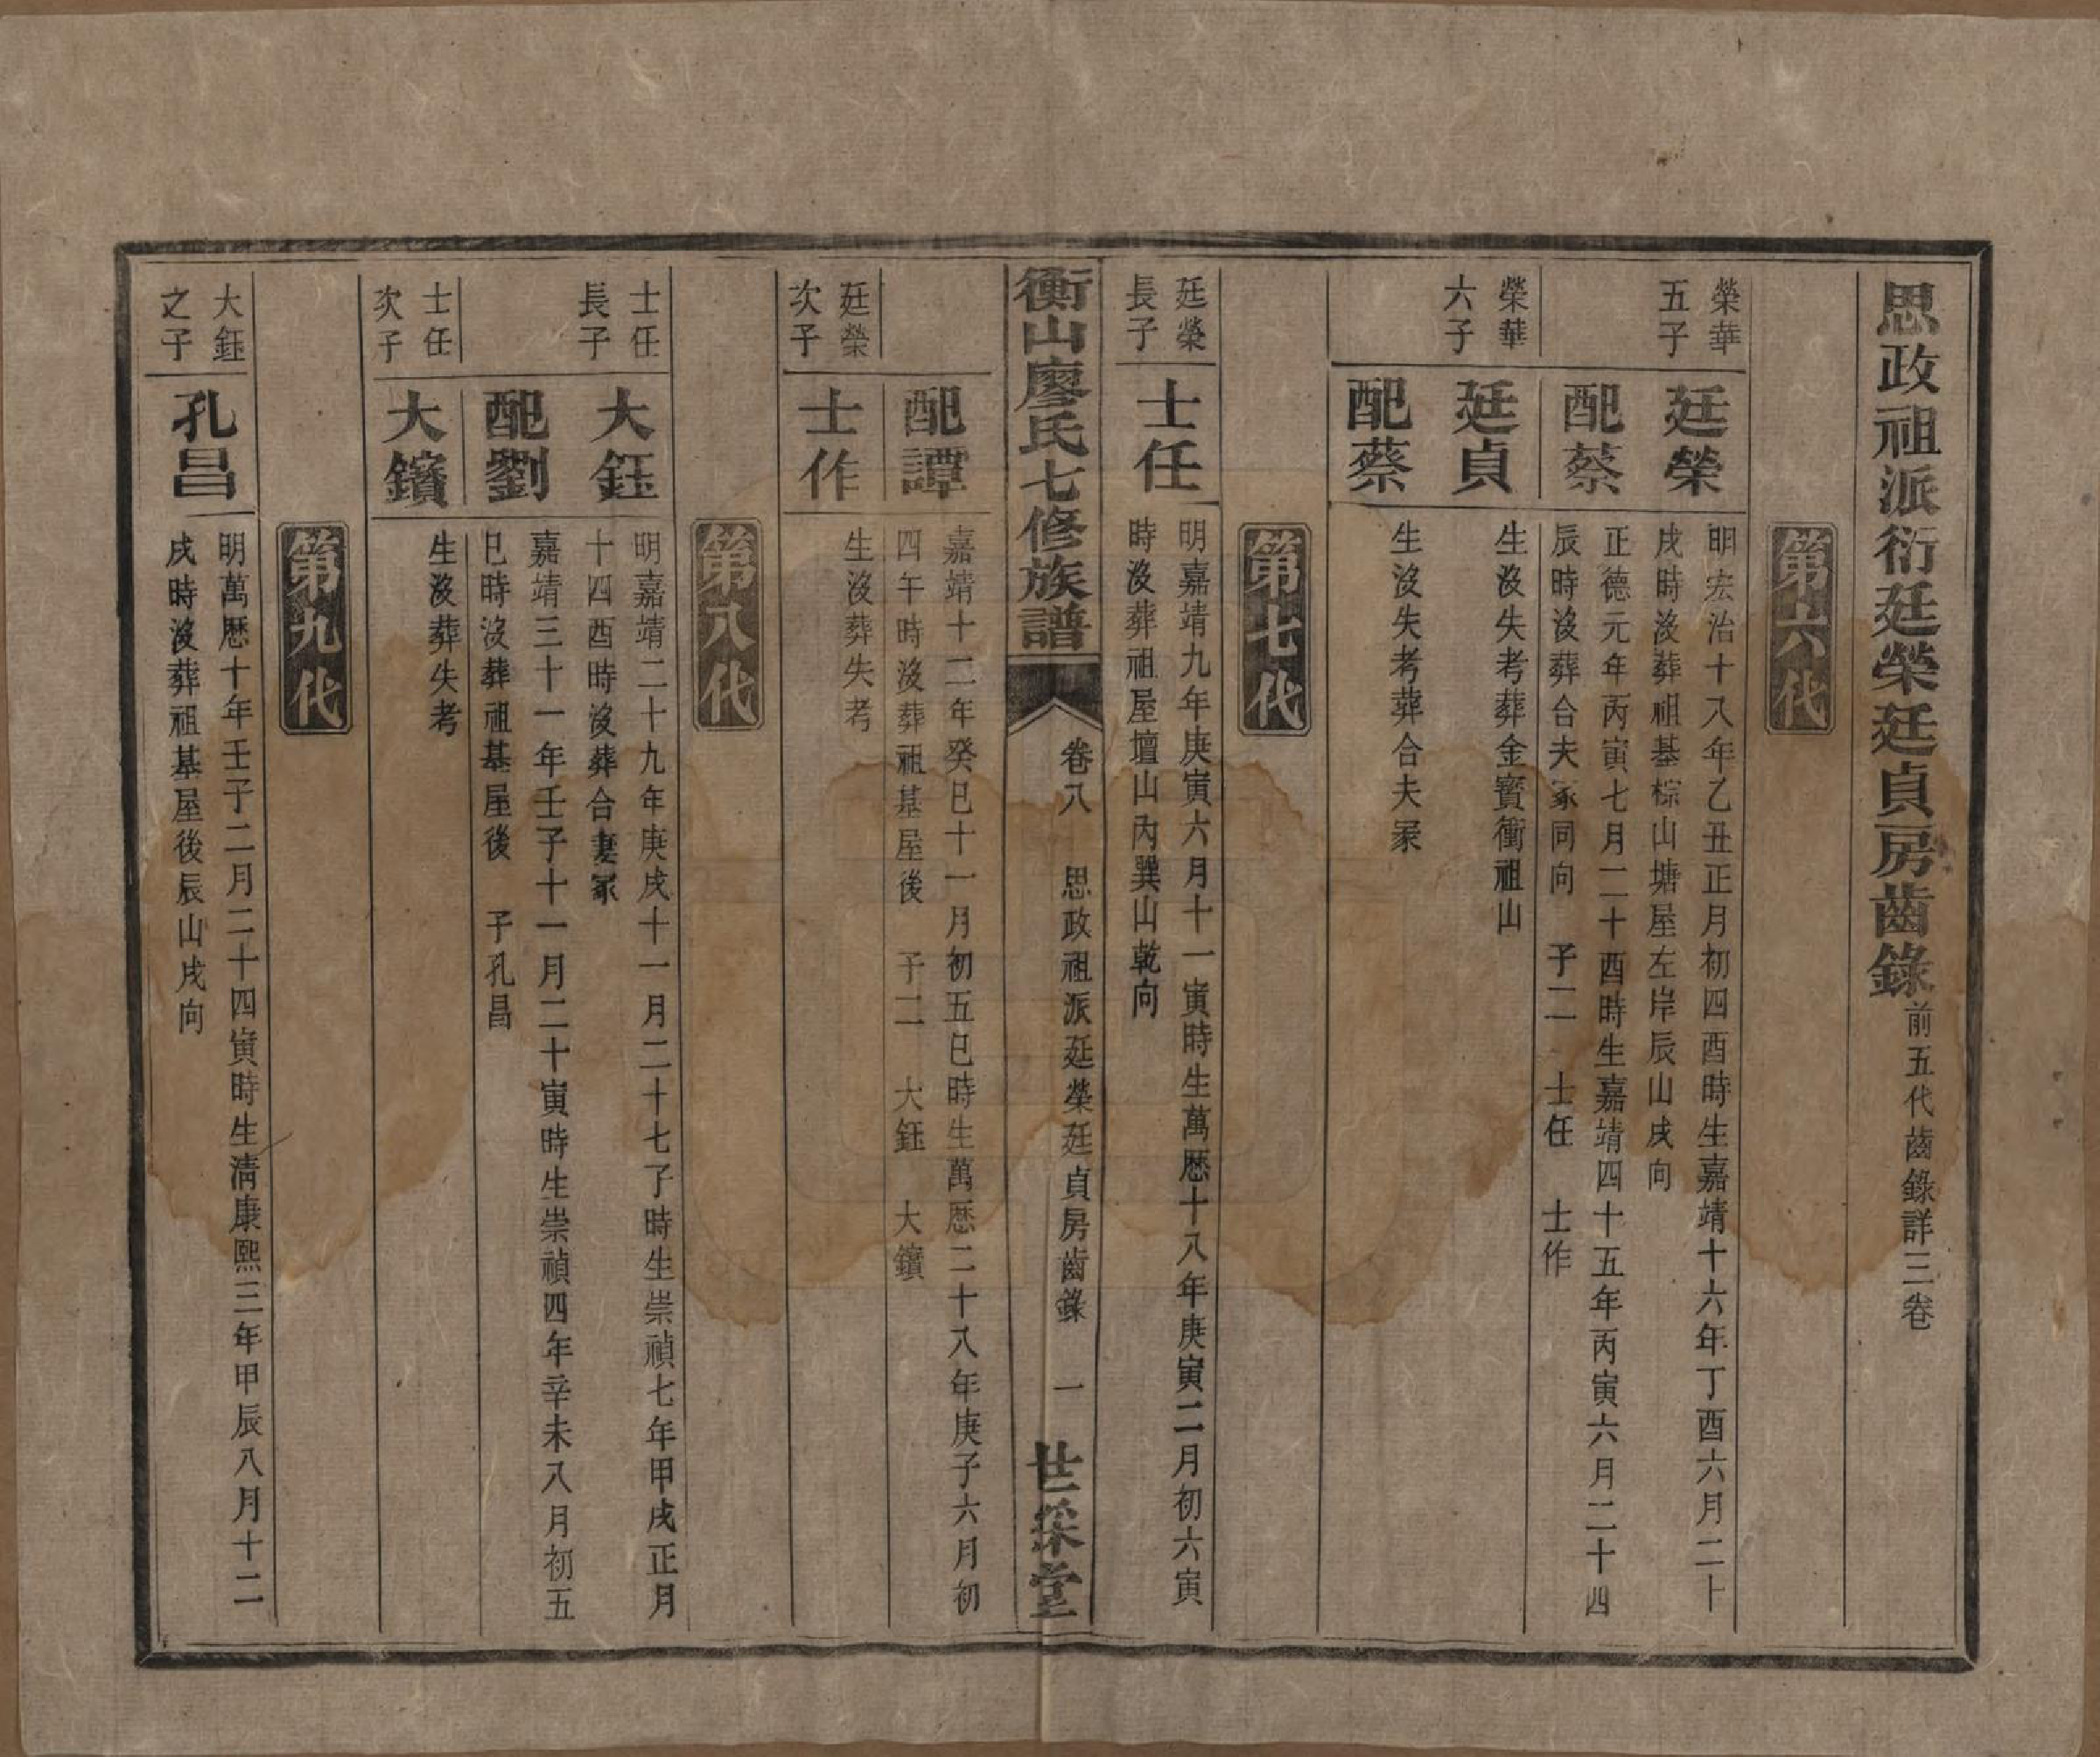 思政祖派衍廷榮廷貞房齒錄前五代齒錄詳三卷
第六代
榮華
五子
廷榮
明宏治十八年乙丑正月初四酉時生嘉靖十六年丁酉六月二十
戌時沒葬祖基棕山塘屋左岸辰山戌向
配蔡
正德元年丙寅七月二十酉時生嘉靖四十五年丙寅六月二十四
辰時沒葬合夫冢同向　子二　士任　士作
榮華
六子
廷貞
生沒失考葬金寶衝祖山
配蔡
生沒失考葬合夫冢
第七代
廷榮
長子
士任
明嘉靖九年庚寅六月十一寅時生萬歷十八年庚寅二月初六寅
時沒葬祖屋壇山內巽山乾向
衡山廖氏七修族譜
卷八　思政祖派廷榮廷貞房齒錄　一
世綵堂
配譚
嘉靖十二年癸巳十一月初五巳時生萬歷二十八年庚子六月初
四午時沒葬祖基屋後　子二　大鈺　大鑌
廷榮
次子
士作
生沒葬失考
第八代
士任
長子
大鈺
明嘉靖二十九年庚戌十一月二十七子時生崇禎七年甲戌正月
十四酉時沒葬合妻冢
配劉
嘉靖三十一年壬子十一月二十寅時生崇禎四年辛未八月初五
巳時沒葬祖基屋後　子孔昌
士任
次子
大鑌
生沒葬失考
第九代
大鈺
之子
孔昌
明萬歷十年壬子二月二十四寅時生清康熙三年甲辰八月十二
戌時沒葬祖基屋後辰山戌向